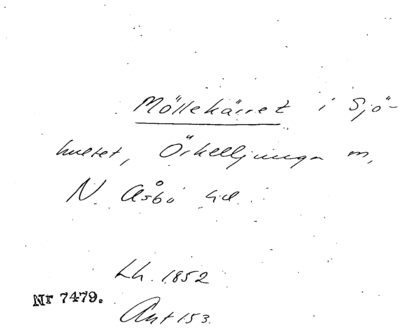 Möllekärret i Sjö-
hultet, Örkelljunga m,
N. Åsbo hd
Lh. 1852
Nr 7479.
Akt 153.